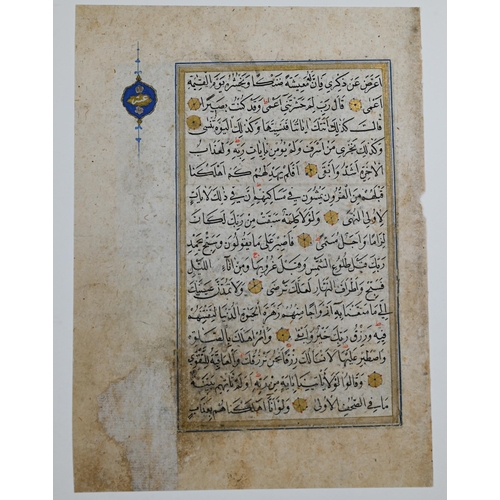 اعرض عن ذكري فان له معيشة ضنكا ونحشره يوم القيمة
اعمى قال رب لم حشرتني اعمى وقد كنت بصيرا
قال كذلك اتتك اياتنا فنسيتها وكذلك اليوم تنسى
وكذلك نجزي من اسرف ولم يؤمن بايات ربه ولعذاب
الاخرة اشد وابقى افلم يهد لهم كم اهلكنا
قبلهم من القرون يمشون في مساكنهم ان في ذلك لايات
لاولي النهى ولولا كلمة سبقت من ربك لكان
لزاما واجل مسمى فاصبر على ما يقولون وسبح بحمد
ربك قبل طلوع الشمس وقبل غروبها ومن اناء الليل
فسبح واطراف النهار لعلك ترضى ولا تمدن عينيك
الى ما متعنا به ازواجا منهم زهرة الحيوة الدنيا لنفتنهم
فيه ورزق ربك خير وابقى وامر اهلك بالصلوة
واصطبر عليها لا نسالك رزقا نحن نرزقك والعاقبة للتقوى
وقالوا لولا ياتينا باية من ربه اولم تاتهم بينة
ما في الصحف الاولى ولو انا اهلكناهم بعذاب